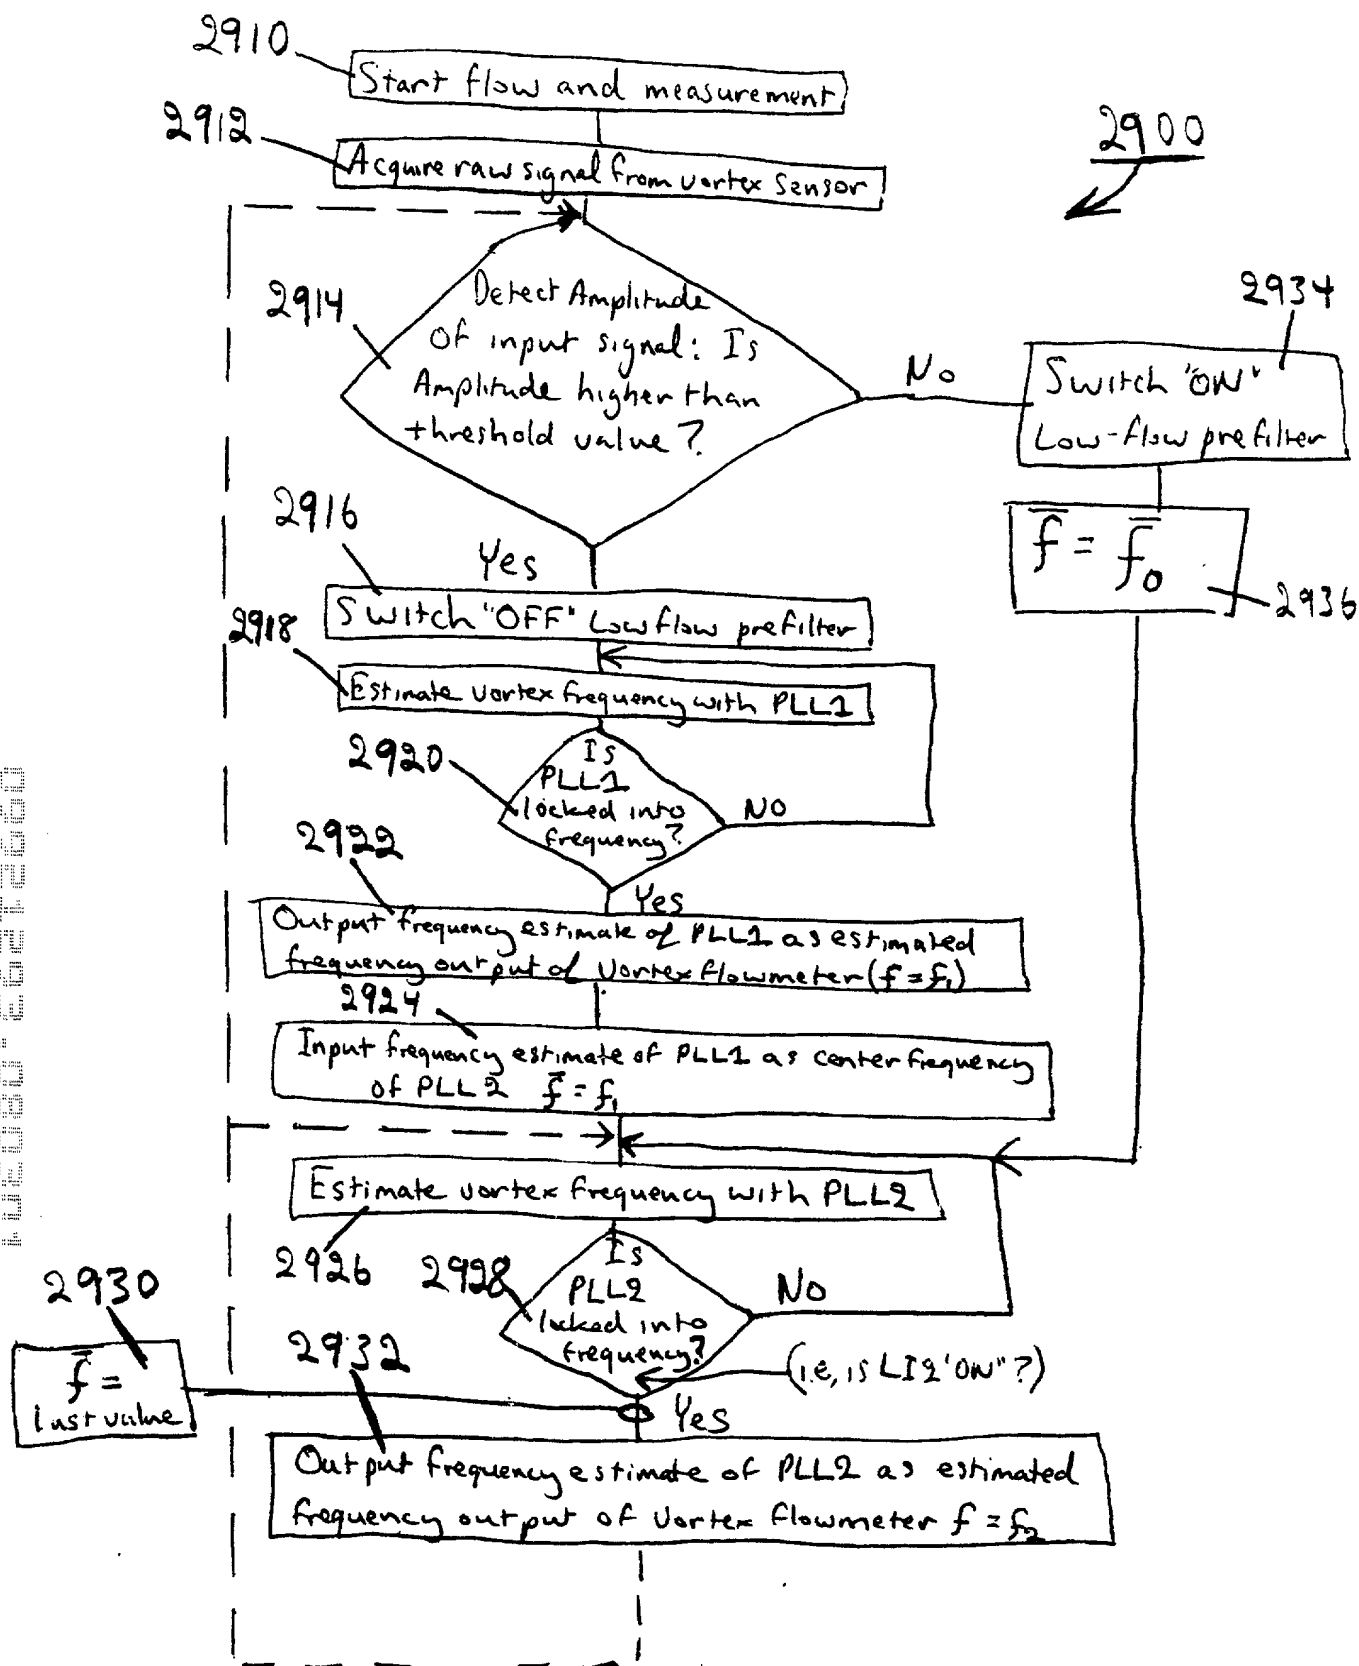 2910
Start flow and measurement
2912
Acquire raw signal from vortex sensor
2900
2914
Detect Amplitude
Of input signal: Is
Amplitude higher than
threshold value?
No
2934
Switch "ON"
Low-flow prefilter
f̅ = f̅₀
2936
2916
Yes
Switch "OFF" Low flow prefilter
2918
Estimate vortex frequency with PLL1
2920
Is
PLL1
locked into
frequency?
NO
2922
Yes
Output frequency estimate of PLL1 as estimated
frequency output of Vortex flowmeter (f = f₁)
2924
Input frequency estimate of PLL1 as center frequency
of PLL2 f̅ = f₁
Estimate vortex frequency with PLL2
2926
2928
Is
PLL2
locked into
frequency?
No
(i.e, is LI2 'ON"?)
2930
f̅ =
last value
2932
Yes
Output frequency estimate of PLL2 as estimated
frequency output of Vortex flowmeter f = f₂